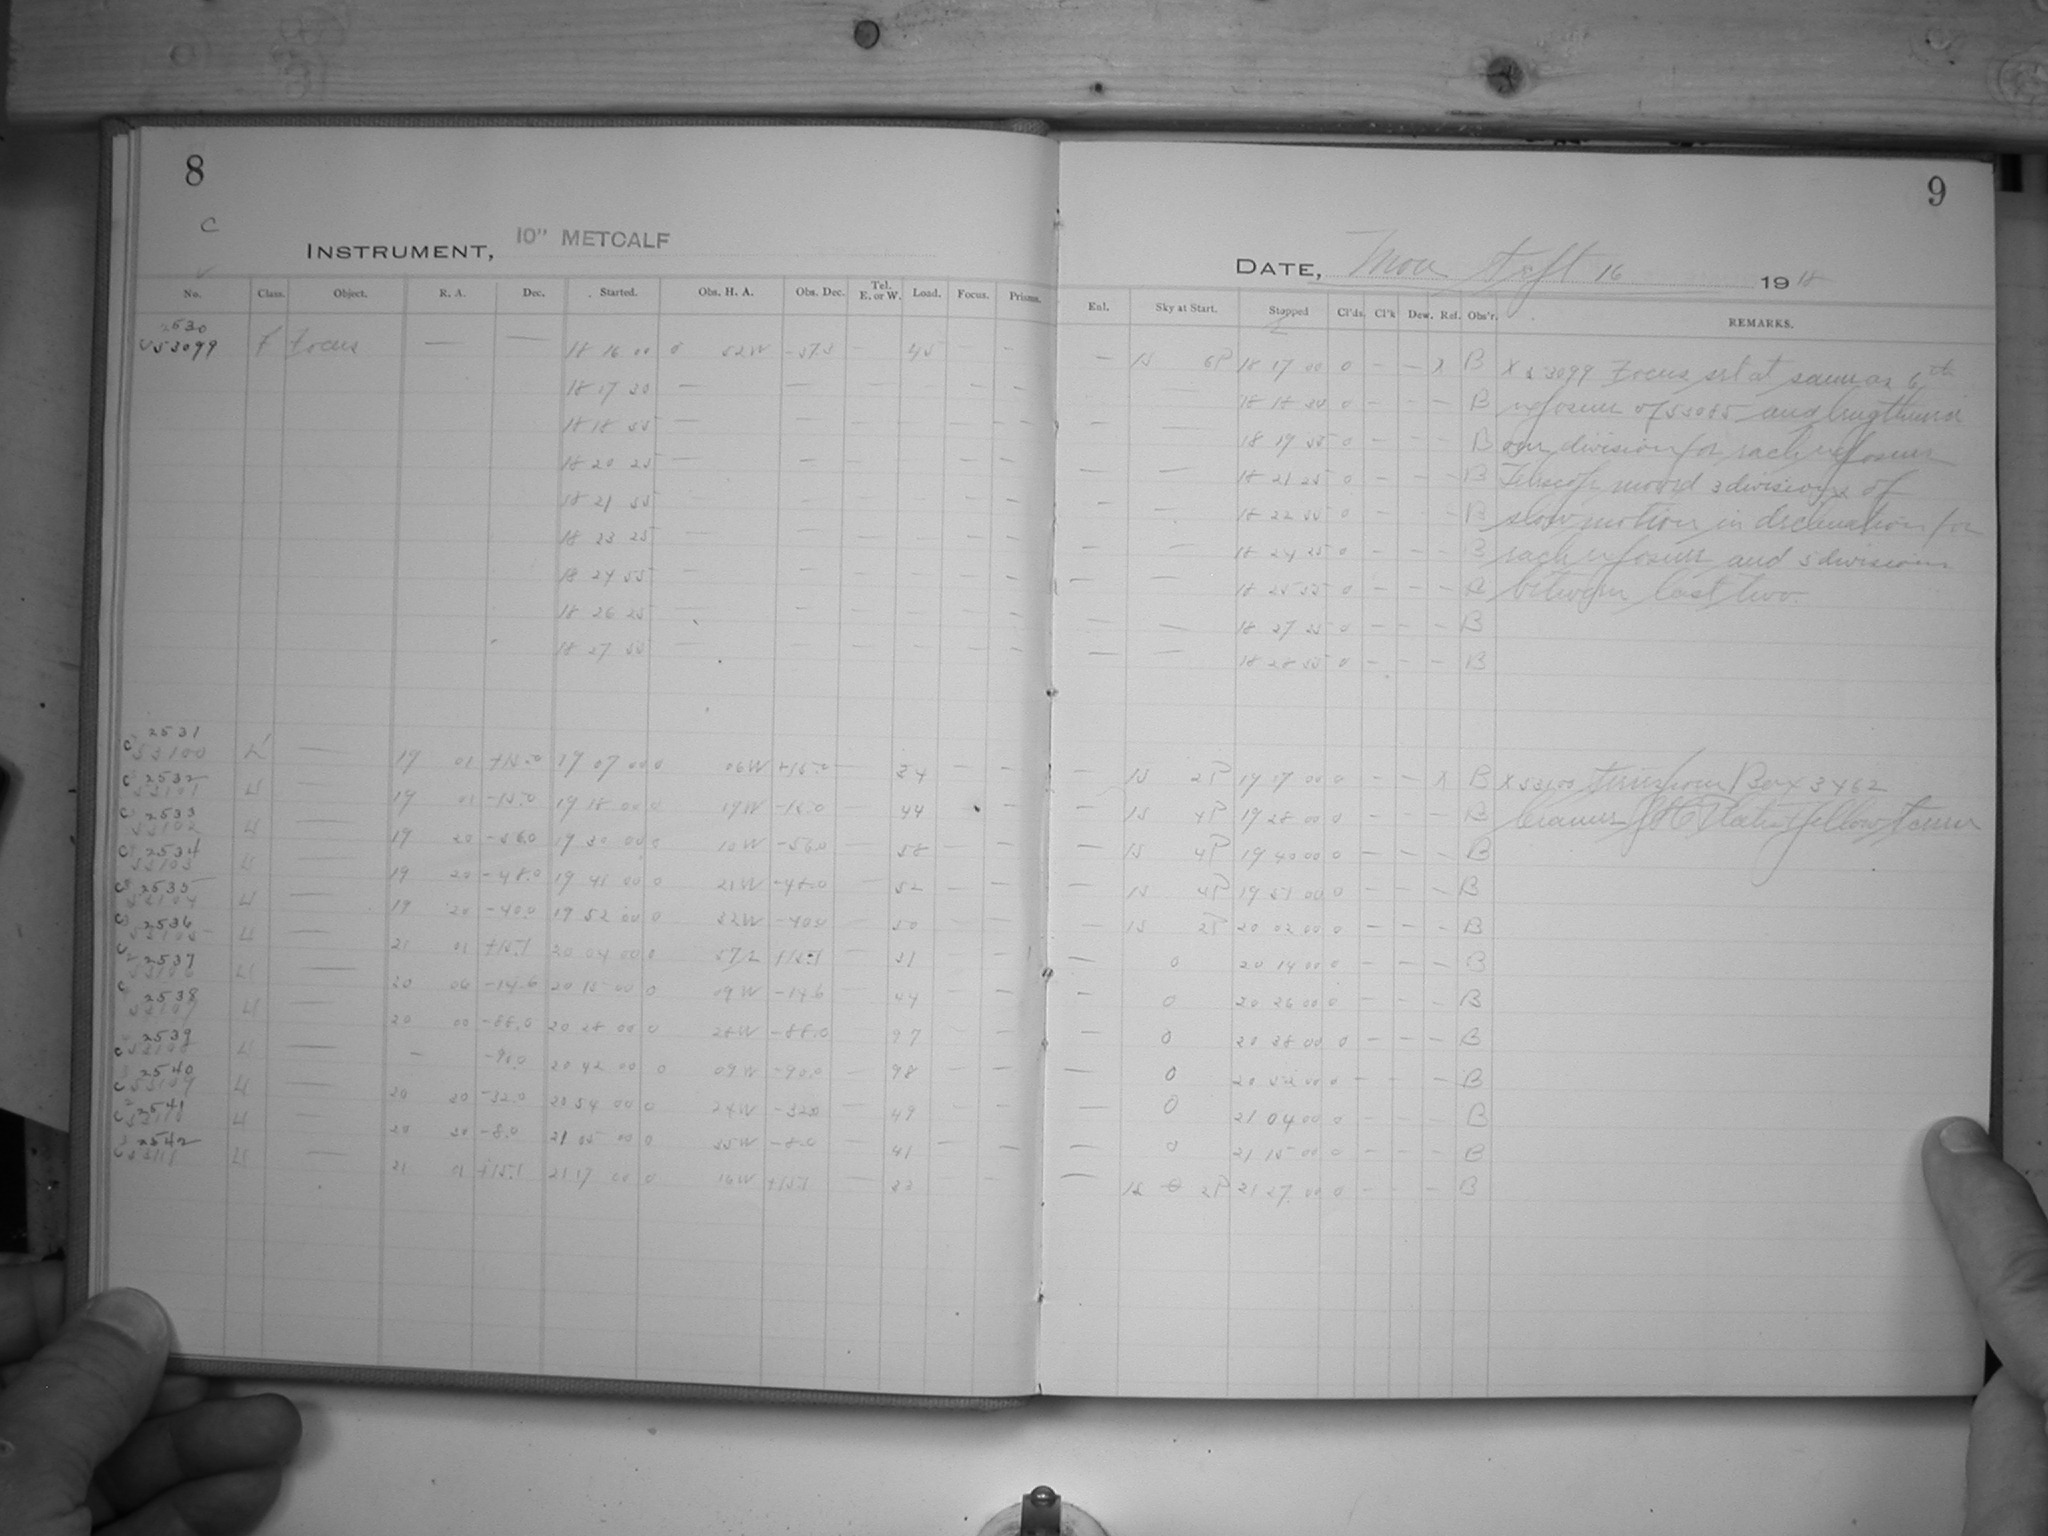 8
9
C
INSTRUMENT, 10" METCALF
DATE, Mon Sept 16 1918
No. Class. Object. R. A. Dec. Started. Obs. H. A. Obs. Dec. Tel. E. or W. Load. Focus. Prisms. Enl. Sky at Start. Stopped Cl'ds. Cl'k Dew. Ref. Obs'r. REMARKS.
2530
53099 F Focus — — 18 16 00 0 52W 45 — — — 15 6P 18 17 00 0 — — X B X 53099 Focus set at same as 6th
18 17 20 — — — 18 18 0 — — — B exposure of 53085 and lengthened
18 18 55 — — — — — — — 18 19 55 0 — — — B one division for each exposure
18 20 25 — — — — — — — 18 21 25 0 — — — B Telescope moved 3 divisions of
18 21 55 — — — — — — — 18 22 55 0 — — — B slow motion in declination for
18 23 25 — — — — — — — 18 24 25 0 — — — B each exposure and 5 divisions
18 24 55 — — — — — — — 18 25 55 0 — — — B between last two.
18 26 25 — — — — — — — 18 27 25 0 — — — B
18 27 55 — — — — — — — 18 28 55 0 — — — B
2531
53100 — 19 01 +15.0 19 07 00 0 06W +15.0 — 34 — — — 15 2P 19 17 00 0 — — X B X 53100 Series from Box 3462
2532
53101 — 19 01 -15.0 19 18 00 0 19W -15.0 — 44 — — — 15 4P 19 28 00 0 — — — B Cramer Plates Yellow
2533
53102 — 19 20 -56.0 19 30 00 0 10W -56.0 — 58 — — — 15 4P 19 40 00 0 — — — B
2534
53103 — 19 20 -48.0 19 41 00 0 21W -48.0 — 52 — — — 15 4P 19 51 00 0 — — — B
2535
53104 — 19 20 -40.0 19 52 00 0 32W -40.0 — 50 — — — 15 2P 20 02 00 0 — — — B
2536
53105 — 21 01 +15.1 20 04 00 0 +15.1 — 31 — — — 0 20 14 00 0 — — — B
2537
53106 — 20 06 -14.6 20 15 00 0 09W -14.6 — 44 — — — 0 20 26 00 0 — — — B
2538
53107 — 20 00 -88.0 20 28 00 0 28W -88.0 97 — — — 0 20 38 00 0 — — — B
2539
53108 — — -90.0 20 42 00 0 09W -90.0 — 98 — — — 0 20 52 00 0 — — — B
2540
53109 — 20 30 -32.0 20 54 00 0 24W -32.0 — 49 — — — 0 21 04 00 0 — — — B
2541
53110 — 20 30 -8.0 21 05 00 0 35W -8.0 — 41 — — — 0 21 15 00 0 — — — B
2542
53111 — 21 01 +15.1 21 17 00 0 16W +15.1 — 33 — — — 2P 21 27 00 0 — — — B